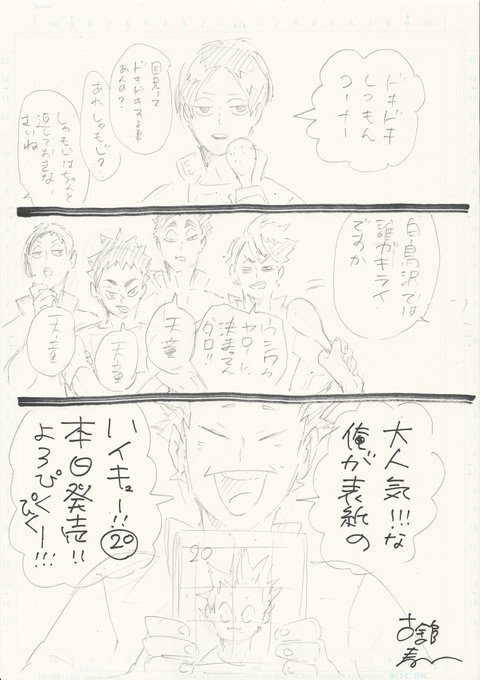 ドキドキ
しつもん
コーナー
国見って
ドキドキする事
あんの?
あれしゃもじ?
しゃもじはちゃんと
返しておきな
さいね
白鳥沢では
誰がキライ
ですか
ウシワカ
ヤローに
決まってん
ダロ!!
天童
天童
天童
大人気!!!な
俺が表紙の
ハイキュー!!
⑳
本日発売!!
よろぴくぴくー!!!
20
古舘
春一